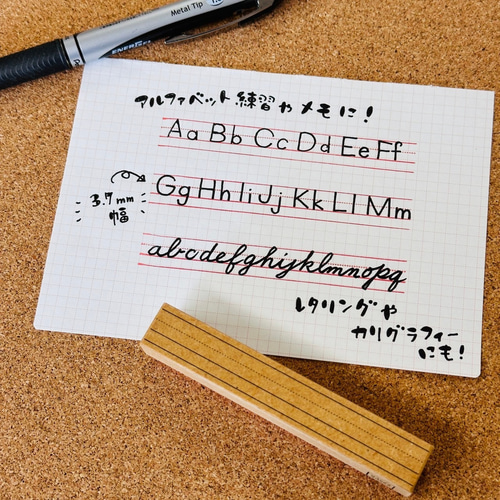 Metal Tip
ENERGEL
アルファベット練習やメモに!
Aa Bb Cc Dd Ee Ff
Gg Hh Ii Jj Kk Ll Mm
3.7mm
幅
abcdefghijklmnopq
レタリングや
カリグラフィー
にも!